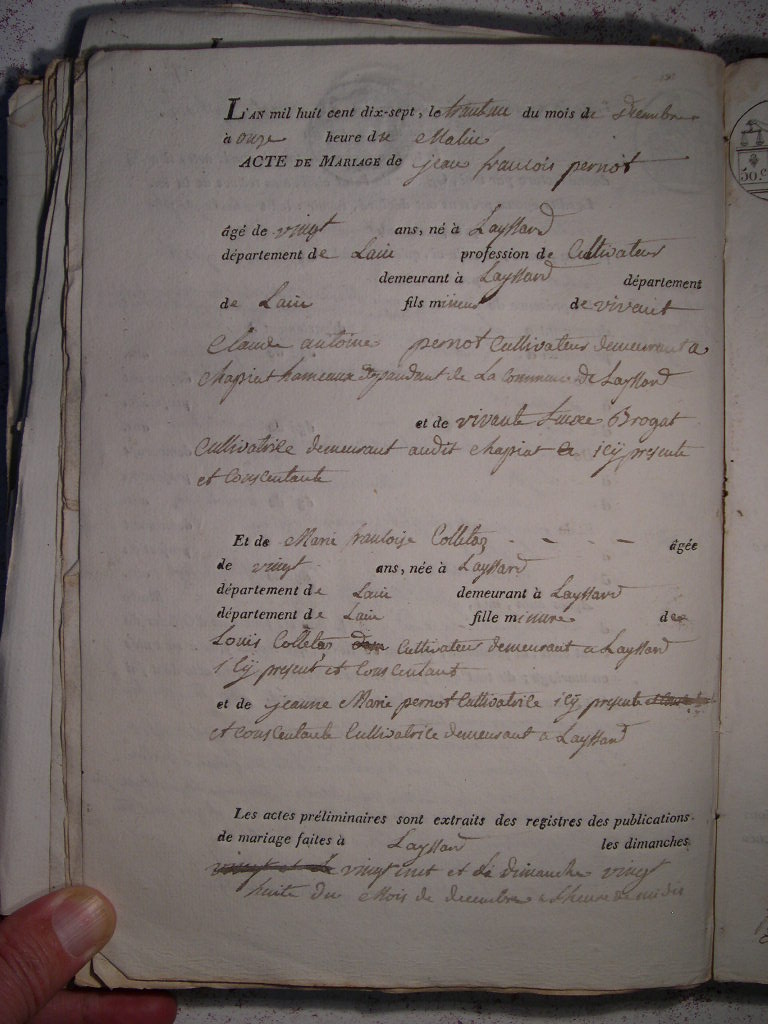 L'AN mil huit cent dix-sept, le trantau du mois de Décembre
à onze heure du Matin
ACTE DE MARIAGE de jean francois pernot
âgé de vingt ans, né à Layssard
département de Lain profession de Cultivateur
demeurant à Layssard département
de Lain fils mineur de vivant
Claude antoine pernot Cultivateur demeurant a
Chapiat hameaux depandant de La Commune de Layssard
et de vivante Brogat
Cultivatrice demeurant audit chapiat icÿ presente
et Conscentante
Et de Marie francoise Colletaz - - - - âgée
de vingt ans, née à Layssard
département de Lain demeurant à Layssard
département de Lain fille minure de
Louis Colletaz Cultivateur demeurant a Layssard
icÿ present et Conscentant
et de jeanne Marie pernot Cultivatrice icÿ presente
et conscentante Cultivatrice demeurant a Layssard
Les actes préliminaires sont extraits des registres des publications
de mariage faites à Layssard les dimanches
vingt et de vingt inet et Le dimanche vingt
huite du Mois de decembre a heure de midis
50.c